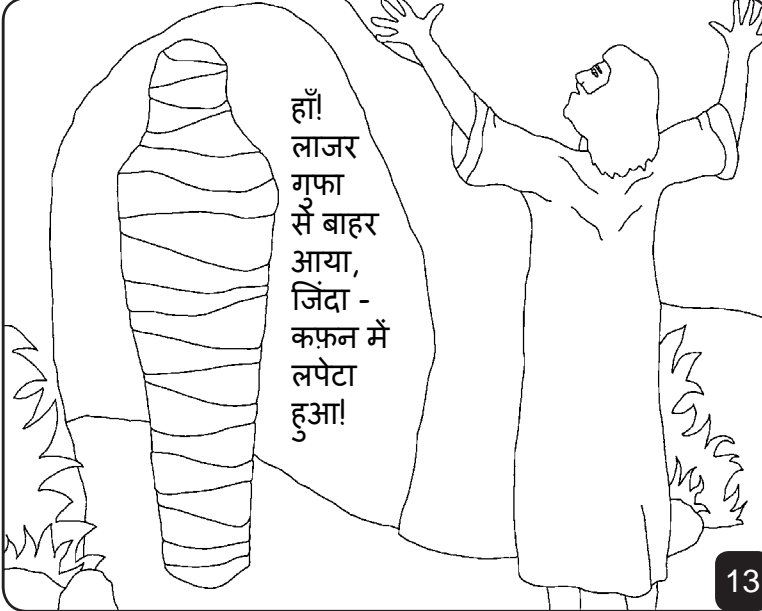 हाँ!
लाजर
गुफा
से बाहर
आया,
जिंदा -
कफ़न में
लपेटा
हुआ!
13